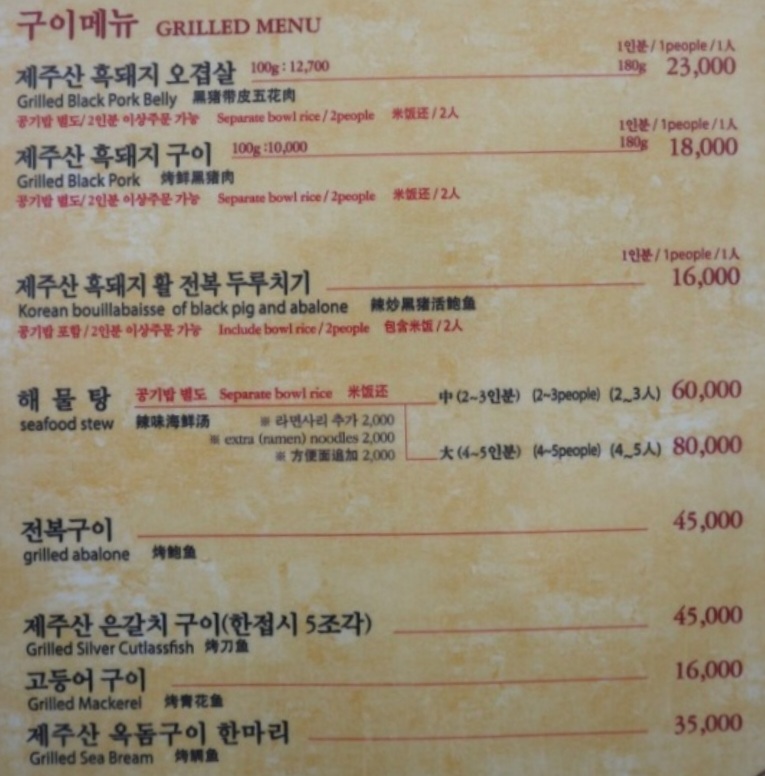 구이메뉴 GRILLED MENU
1인분 / 1people / 1人
제주산 흑돼지 오겹살 100g : 12,700 180g 23,000
Grilled Black Pork Belly 黑猪带皮五花肉
공기밥 별도/ 2인분 이상주문 가능 Separate bowl rice / 2people 米饭还 / 2人
1인분 / 1people / 1人
제주산 흑돼지 구이 100g :10,000 180g 18,000
Grilled Black Pork 烤鲜黑猪肉
공기밥 별도/ 2인분 이상주문 가능 Separate bowl rice / 2people 米饭还 / 2人
1인분 / 1people / 1人
제주산 흑돼지 활 전복 두루치기 16,000
Korean bouillabaisse of black pig and abalone 辣炒黑猪活鲍鱼
공기밥 포함 / 2인분 이상주문 가능 Include bowl rice / 2people 包含米饭 / 2人
해 물 탕 공기밥 별도 Separate bowl rice 米饭还 中 (2~3인분) (2~3people) (2~3人) 60,000
seafood stew 辣味海鲜汤 ※ 라면사리 추가 2,000
※ extra (ramen) noodles 2,000
※ 方便面追加 2,000 大 (4~5인분) (4~5people) (4~5人) 80,000
전복구이 45,000
grilled abalone 烤鲍鱼
제주산 은갈치 구이(한접시 5조각) 45,000
Grilled Silver Cutlassfish 烤刀鱼
고등어 구이 16,000
Grilled Mackerel 烤青花鱼
제주산 옥돔구이 한마리 35,000
Grilled Sea Bream 烤鲷鱼